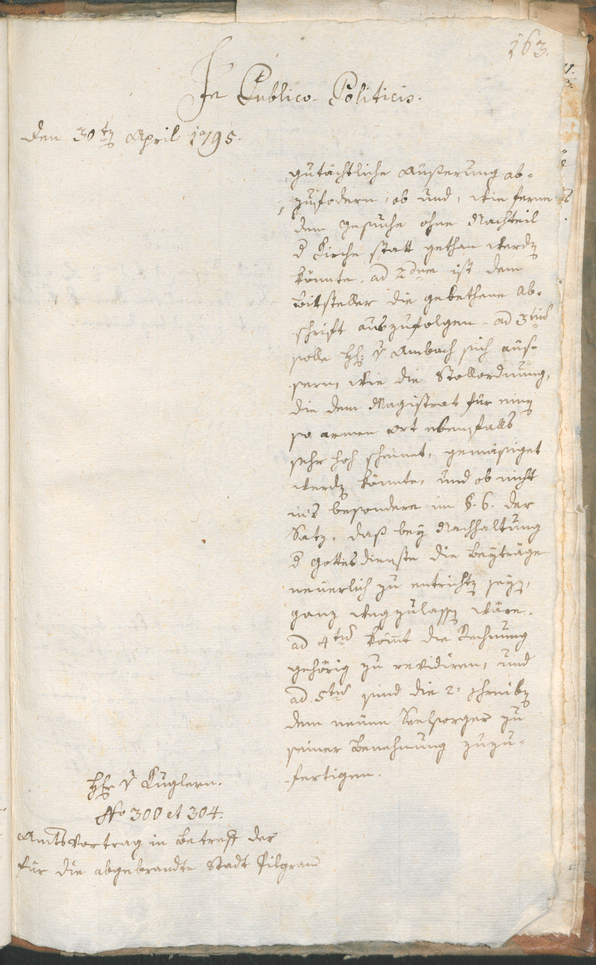 263.
In Publico-Politicis.
Den 30ten April 1795.
gutächtliche Äußerung ab-
zufodern, ob und, wie ferne
dem Gesuche ohne Nachteil
d Kirche statt gethan werden
könnte. ad 2dum ist dem
Bittsteller die gebethene Ab-
schrift auszufolgen. ad 3tium
solle H: v Ambach sich äus-
sern, wie die Stollordnung,
die dem Magistrat für einen
so armen Ort ebenfalls
sehr hoch scheinet, gemäsiget
werden könnte, und ob nicht
ins besondere im §. 6. der
Satz, daß bey Nachhaltung
d Gottesdienste die Beyträge
neuerlich zu entrichten seyen,
ganz wegzulassen wäre.
ad 4tum kömt die Rechnung
gehörig zu revidiren, und
ad 5tum sind die 2: Schreiben
dem neuen Seelsorger zu
seiner Benehmung zuzu-
fertigen.
H: v Kuglern.
No 300 et 304.
Amtsvortrag in Betreff der
für die abgebrandte Stadt Pilgram